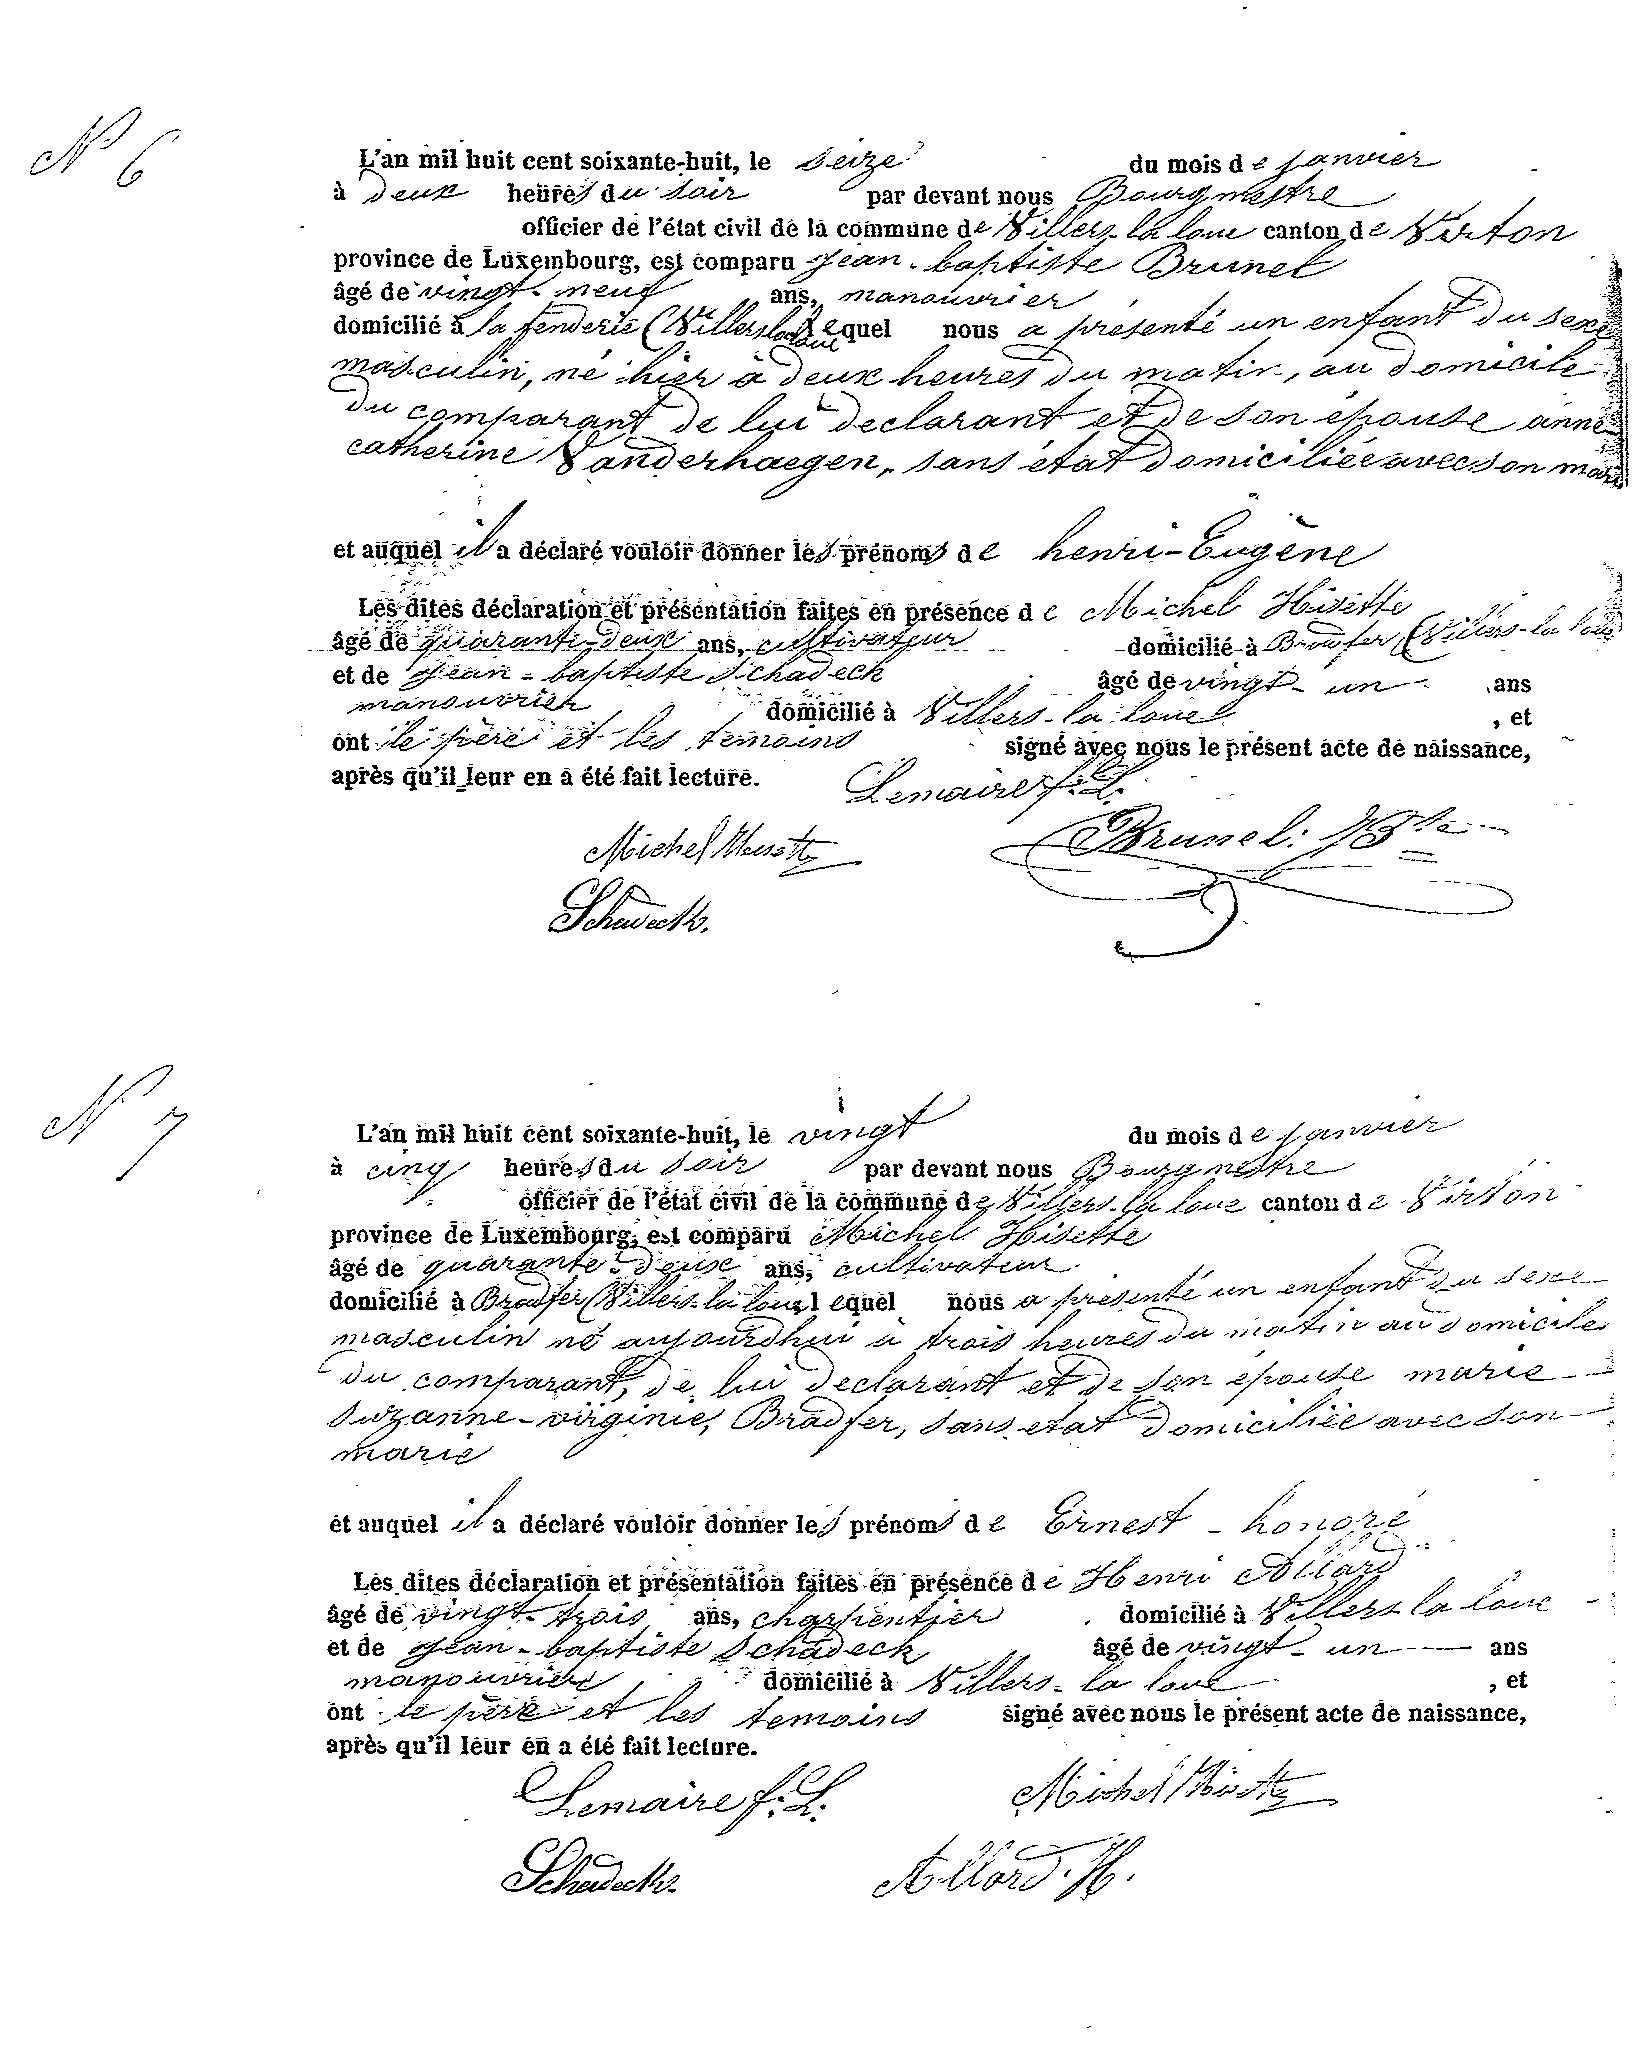 N° 6
L'an mil huit cent soixante-huit, le seize du mois de janvier
à deux heures du soir par devant nous Bourgmestre
officier de l'état civil de la commune de Villers-la loue canton de Virton
province de Luxembourg, est comparu jean-baptiste Brunel
âgé de vingt-neuf ans, manouvrier
domicilié à la fenderie (Villers la loue lequel nous a présenté un enfant du sexe
masculin, né hier à deux heures du matin, au domicile
du comparant de lui declarant et de son épouse anne
catherine Vanderhaegen, sans état domiciliée avec son mari
et auquel il a déclaré vouloir donner les prénoms de henri-Eugène
Les dites déclaration et présentation faites en présence de Michel Hisette
âgé de quarante-deux ans, cultivateur domicilié à Bradfer (Villers-la loue
et de jean-baptiste Schadeck âgé de vingt-un ans
manouvrier domicilié à Villers-la loue , et
ont le père et les temoins signé avec nous le présent acte de naissance,
après qu'il leur en a été fait lecture. Lemaire f. L.
Michel Hisette Brunel. JBte
Schadeck.
N° 7
L'an mil huit cent soixante-huit, le vingt du mois de janvier
à cinq heures du soir par devant nous Bourgmestre
officier de l'état civil de la commune de Villers-la loue canton de Virton
province de Luxembourg, est comparu Michel Hisette
âgé de quarante-deux ans, cultivateur
domicilié à Bradfer (Villers-la loue) lequel nous a présenté un enfant du sexe
masculin né aujourdhui à trois heures du matin au domicile
du comparant, de lui declarant et de son épouse marie
suzanne-virginie, Bradfer, sans état domiciliée avec son
marie
et auquel il a déclaré vouloir donner les prénoms de Ernest-honoré
Les dites déclaration et présentation faites en présence de Henri Allard
âgé de vingt-trois ans, charpentier domicilié à Villers-la loue
et de jean-baptiste Schadeck âgé de vingt-un ans
manouvrier domicilié à Villers-la loue , et
ont le père et les temoins signé avec nous le présent acte de naissance,
après qu'il leur en a été fait lecture.
Lemaire f. L. Michel Hisette
Schadeck. Allard. H.